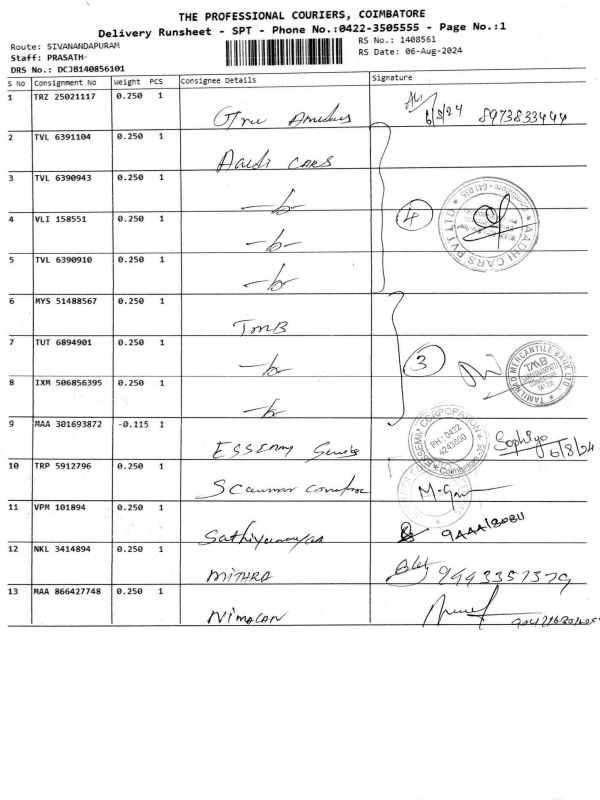 THE PROFESSIONAL COURIERS, COIMBATORE
Delivery Runsheet - SPT - Phone No.:0422-3505555 - Page No.:1
Route: SIVANANDAPURAM
RS No.: 1408561
Staff: PRASATH
RS Date: 06-Aug-2024
DRS No.: DCJB140856101
S No Consignment No Weight PCS Consignee Details Signature
1 TRZ 25021117 0.250 1
6/8/24 8973833444
2 TVL 6391104 0.250 1
CARS
3 TVL 6390943 0.250 1
4 VLI 158551 0.250 1
4
AADHI CARS PVT LTD
5 TVL 6390910 0.250 1
6 MYS 51488567 0.250 1
TMB
7 TUT 6894901 0.250 1
3
TAMILNAD MERCANTILE BANK LTD
TMB
8 IXM 506856395 0.250 1
9 MAA 301693872 -0.115 1
ESSEMM
ESSEMM CORPORATION
PH : 0422
4243800
Coimbatore-35
Sophiya
6/8/24
10 TRP 5912796 0.250 1
11 VPM 101894 0.250 1
Sathiyanarayan
12 NKL 3414894 0.250 1
MITHRA
9443357379
13 MAA 866427748 0.250 1
NIMALAN